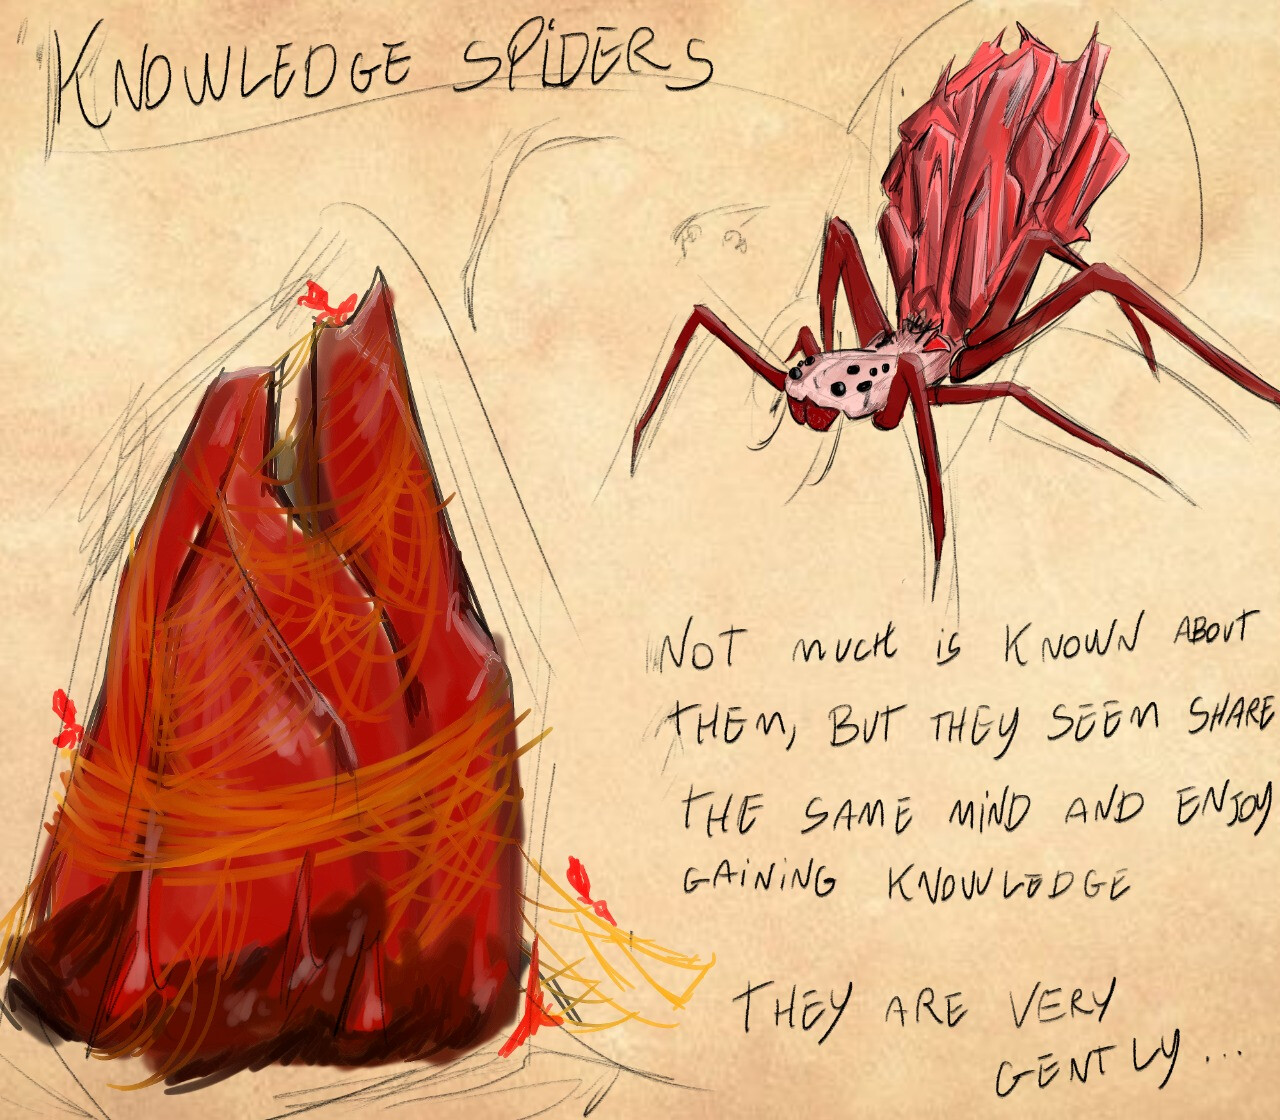 KNOWLEDGE SPiDERS
NOT much is KNOWN ABOUT
THEM, BUT THEY SEEM SHARE
THE SAME MiND AND ENJOY
GAiNiNG KNOWLEDGE
THEY ARE VERY
GENTLY...